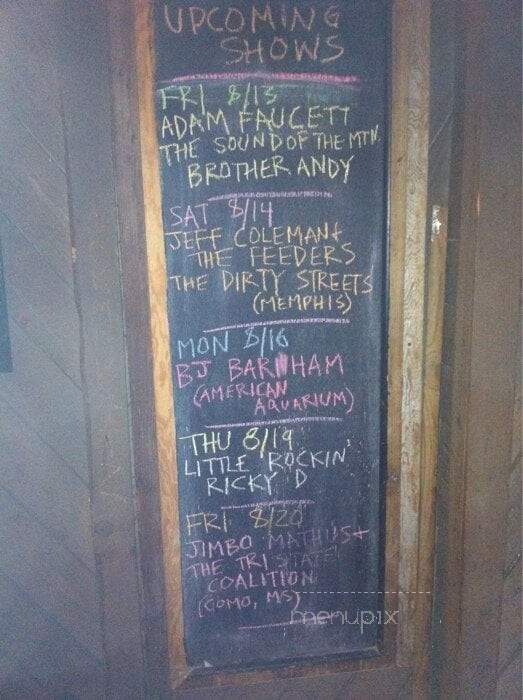 UPCOMING
SHOWS
FRI 8/13
ADAM FAUCETT
THE SOUND OF THE MTN.
BROTHER ANDY
SAT 8/14
JEFF COLEMAN +
THE FEEDERS
THE DIRTY STREETS
(MEMPHIS)
MON 8/16
BJ BARNHAM
(AMERICAN
AQUARIUM)
THU 8/19
LITTLE ROCKIN'
RICKY D
FRI 8/20
JIMBO MATHUS +
THE TRI STATE
COALITION
(COMO, MS)
menupix